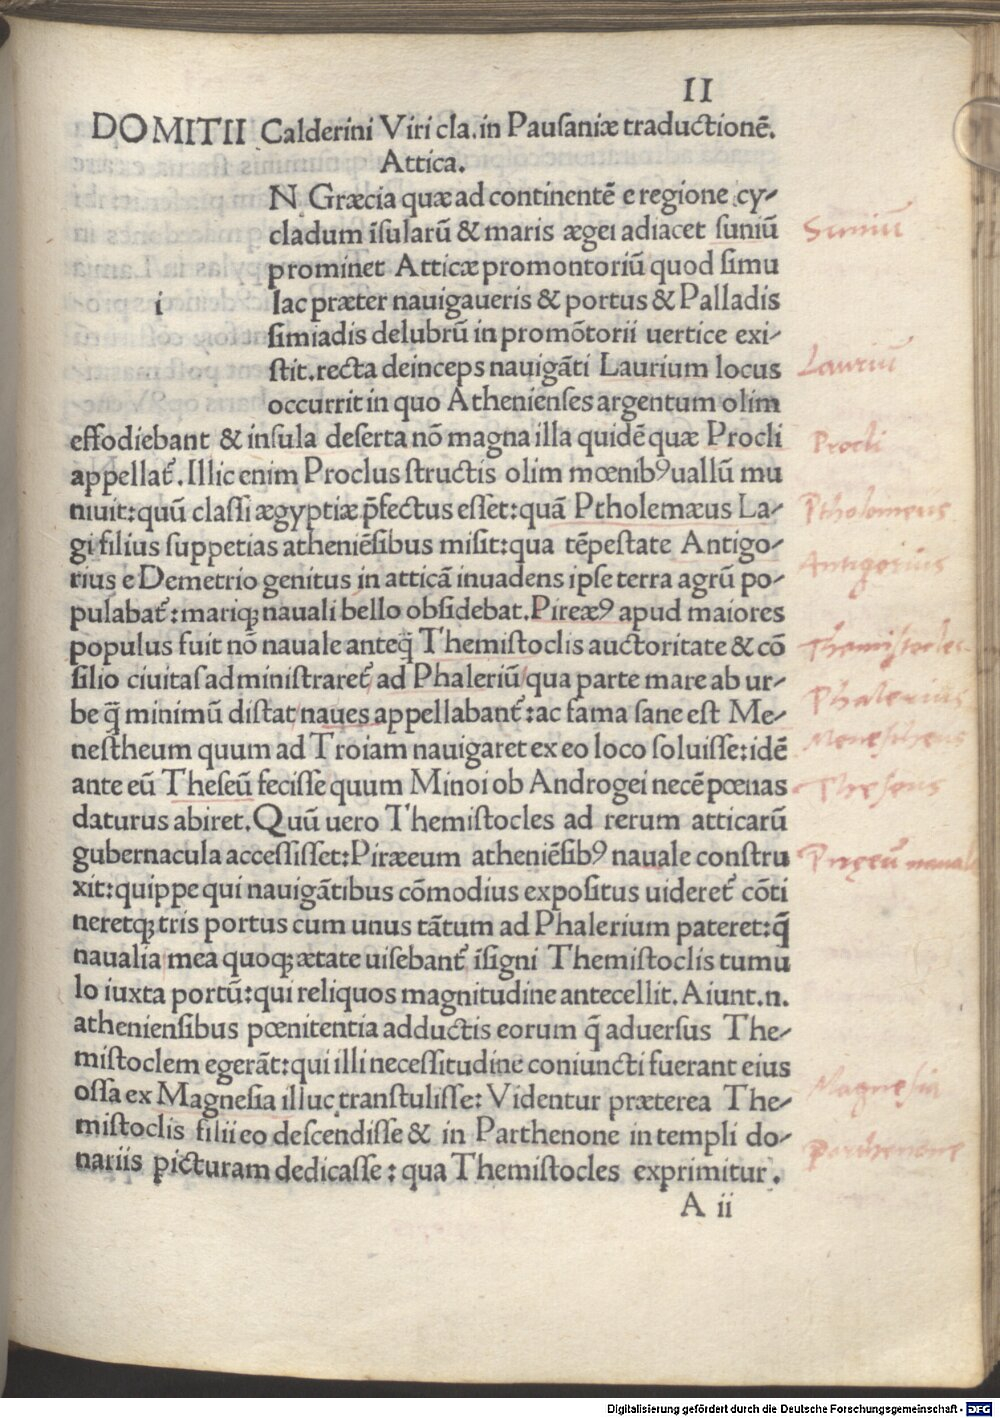 II
DOMITII Calderini Viri cla. in Pausaniæ traductionē.
Attica.
N Græcia quæ ad continentē e regione cy-
cladum īsularū & maris ægei adiacet suniū
prominet Atticæ promontoriū quod simu
i lac præter nauigaueris & portus & Palladis
simiadis delubrū in promōtorii uertice exi-
stit. recta deinceps nauigāti Laurium locus
occurrit in quo Athenienses argentum olim
effodiebant & insula deserta nō magna illa quidē quæ Procli
appellat̄. Illic enim Proclus structis olim mœnibꝰ uallū mu
niuit: quū classi ægyptiæ p̄fectus esset: quā Ptholemæus La-
gi filius suppetias atheniēsibus misit: qua tēpestate Antigo-
rius e Demetrio genitus in atticā inuadens ipse terra agrū po-
pulabat̄: mariqꝫ nauali bello obsidebat. Pireæꝰ apud maiores
populus fuit nō nauale anteq̄ Themistoclis auctoritate & cō
silio ciuitas administraret̄ ad Phaleriū qua parte mare ab ur-
be q̄ minimū distat naues appellabant̄: ac fama sane est Me-
nestheum quum ad Troiam nauigaret ex eo loco soluisse: idē
ante eū Theseū fecisse quum Minoi ob Androgei necē pœnas
daturus abiret. Quū uero Themistocles ad rerum atticarū
gubernacula accessisset: Piræeum atheniēsibꝰ nauale constru
xit: quippe qui nauigātibus cōmodius expositus uideret̄ cōti
neretqꝫ tris portus cum unus tātum ad Phalerium pateret: q̄
naualia mea quoqꝫ ætate uisebant̄ īsigni Themistoclis tumu
lo iuxta portū: qui reliquos magnitudine antecellit. Aiunt .n.
atheniensibus pœnitentia adductis eorum q̄ aduersus The-
mistoclem egerāt: qui illi necessitudine coniuncti fuerant eius
ossa ex Magnesia illuc transtulisse: Videntur præterea The-
mistoclis filii eo descendisse & in Parthenone in templi do-
nariis picturam dedicasse: qua Themistocles exprimitur.
A ii
Suniū
Lauriū
Procli
Ptholomeus
Antigorius
Themistocles
Phalerius
Menestheus
Theseus
Magnesia
parthenone
Digitalisierung gefördert durch die Deutsche Forschungsgemeinschaft - DFG